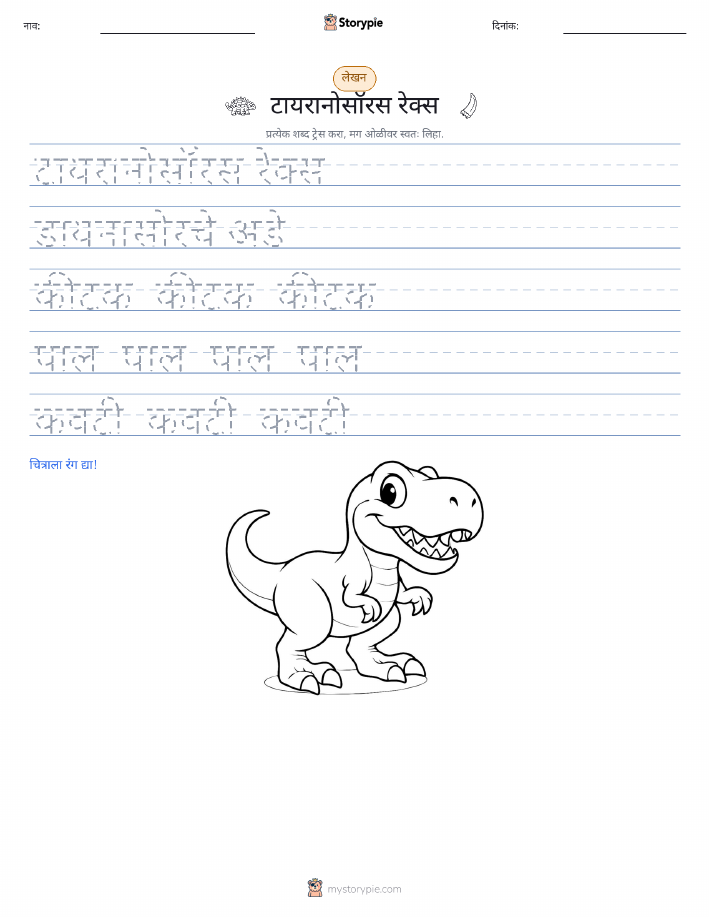 नाव:
Storypie
दिनांक:
लेखन
टायरानोसॉरस रेक्स
प्रत्येक शब्द ट्रेस करा, मग ओळीवर स्वतः लिहा.
टायरानोसॉरस रेक्स
डायनासोरचे अंडे
कीटक कीटक कीटक
पाल पाल पाल पाल
कवटी कवटी कवटी
चित्राला रंग द्या!
mystorypie.com